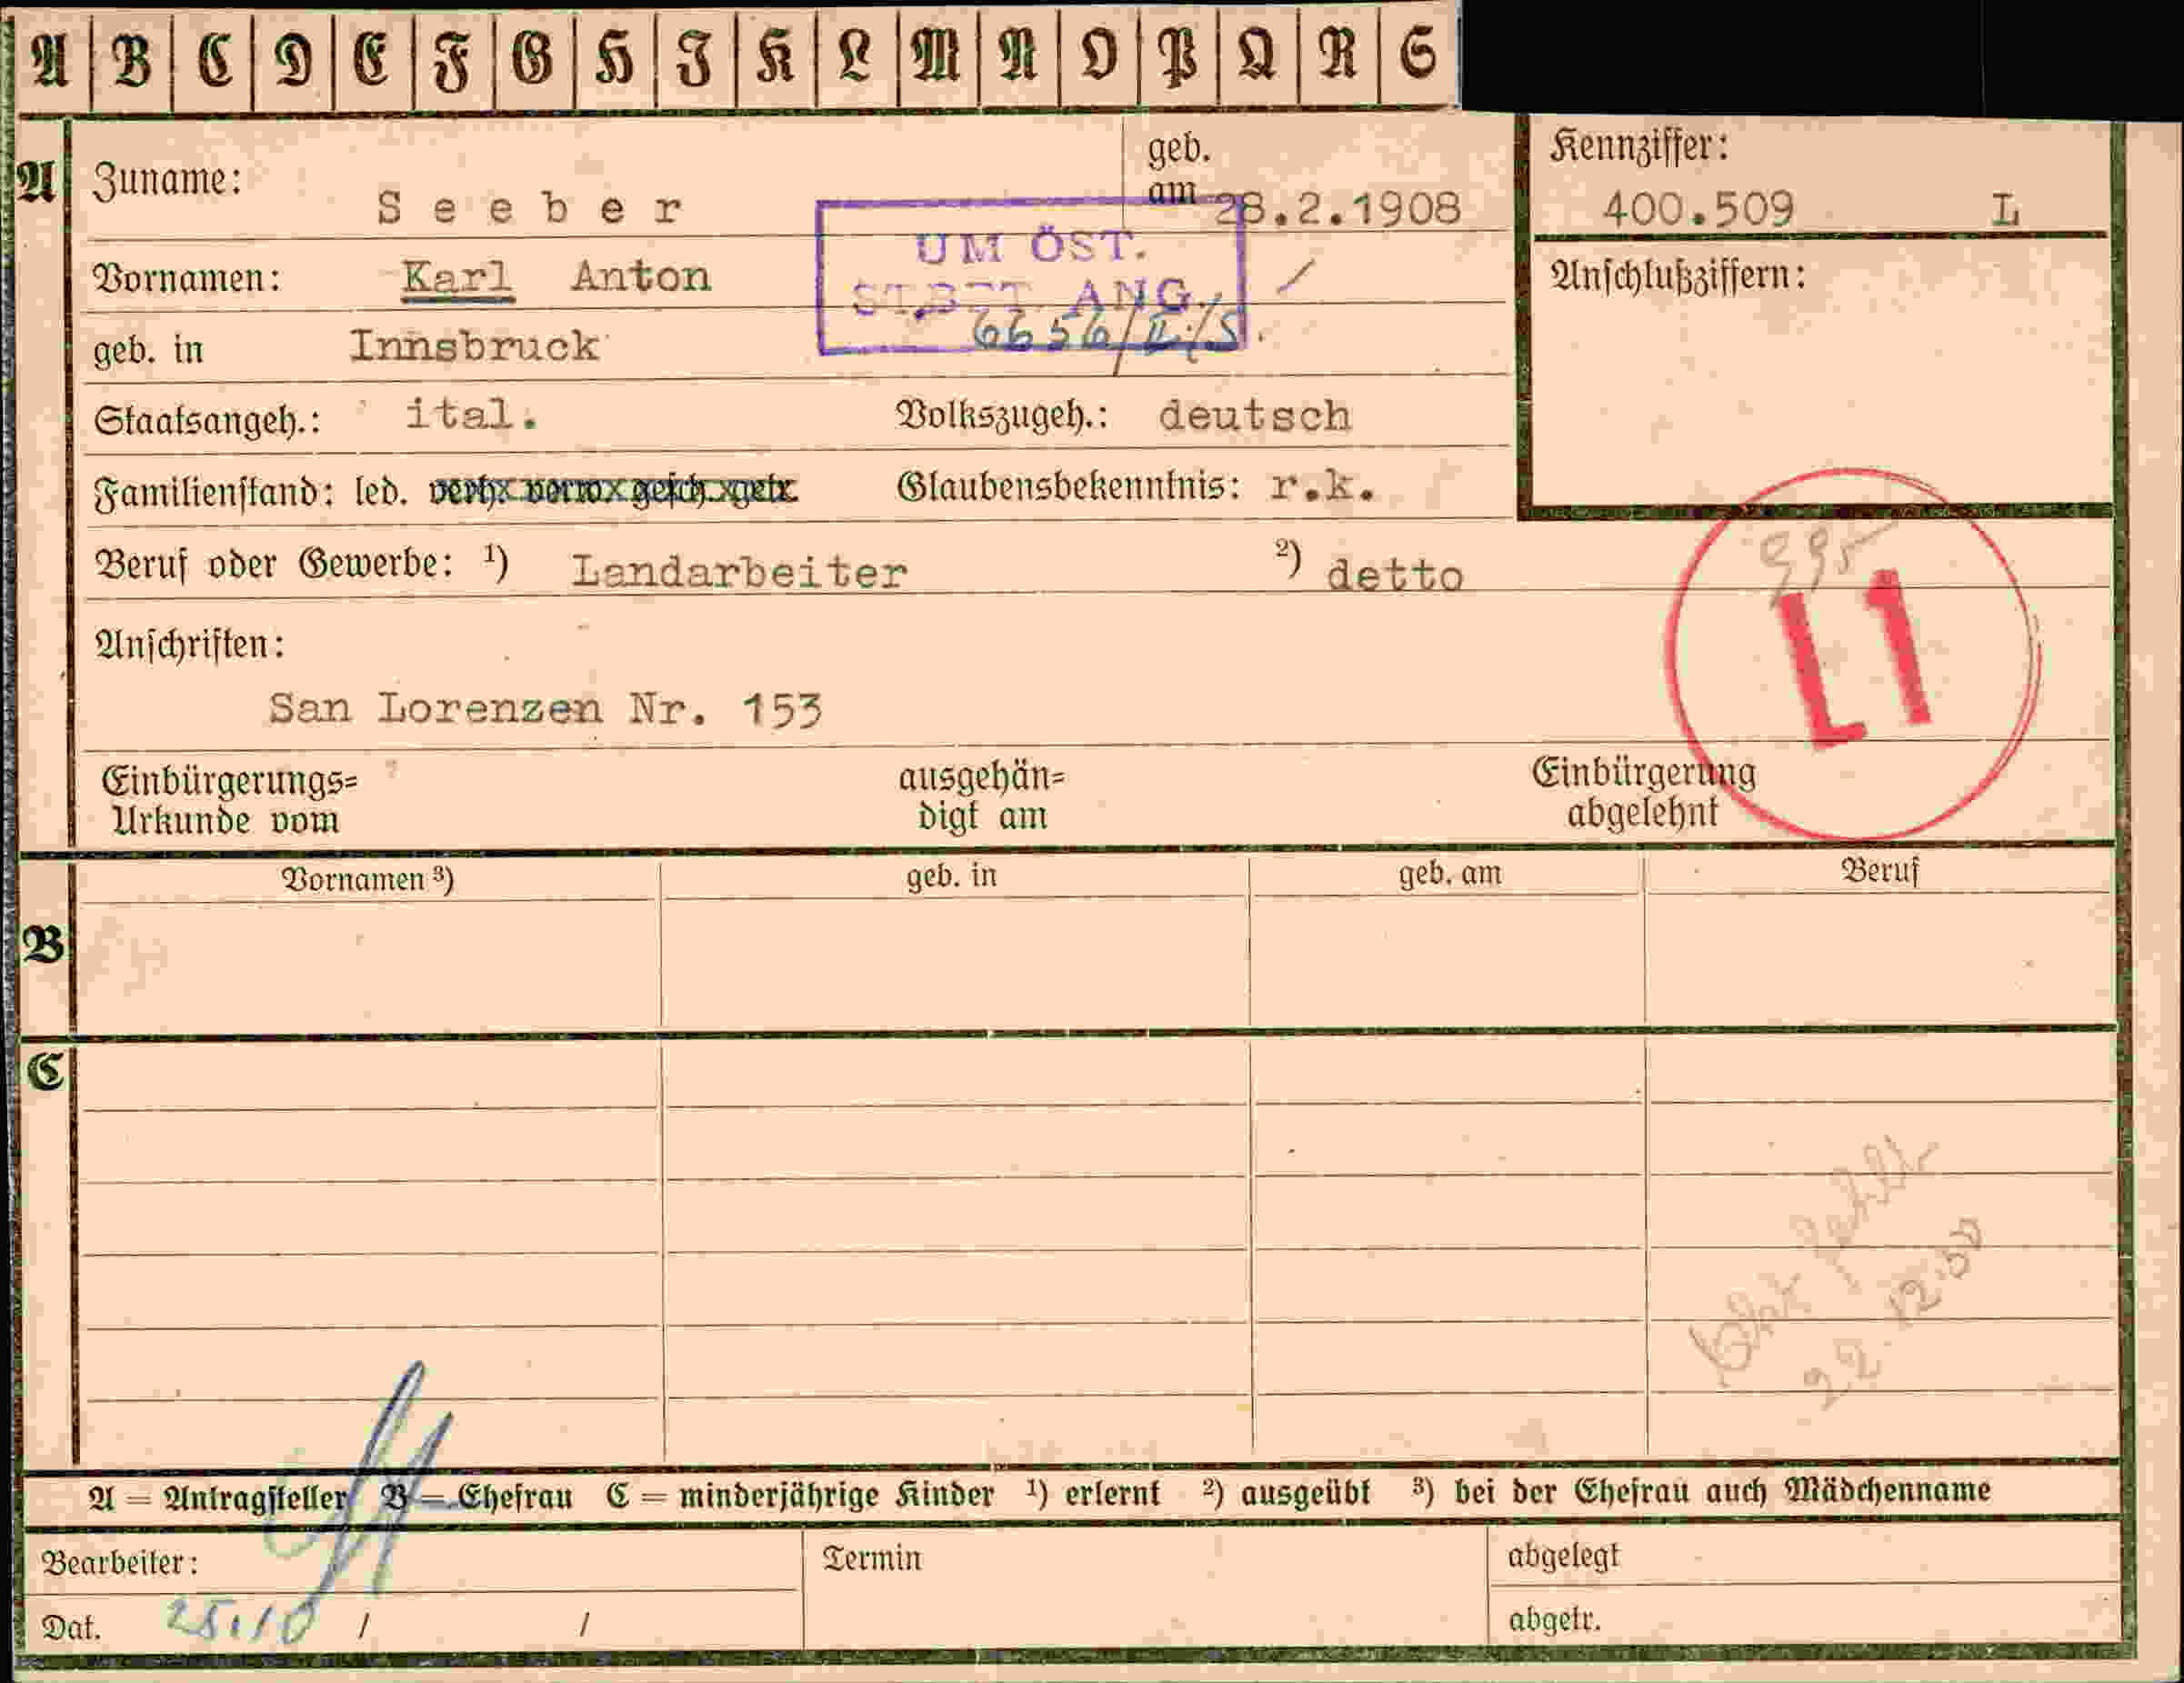 A B C D E F G H I K L M N O P Q R S
A
Zuname: Seeber
geb. am 28.2.1908
Kennziffer:
400.509 L
UM ÖST.
ST.BÜT. ANG.
6656/II/S.
Vornamen: Karl Anton
Anschlußziffern:
geb. in Innsbruck
Staatsangeh.: ital. Volkszugeh.: deutsch
Familienstand: led. verh. verw. gesch. getr. Glaubensbekenntnis: r.k.
Beruf oder Gewerbe: ¹) Landarbeiter ²) detto
995
L1
Anschriften:
San Lorenzen Nr. 153
Einbürgerungs=
Urkunde vom
ausgehän=
digt am
Einbürgerung
abgelehnt
B
Vornamen ³) geb. in geb. am Beruf
C
fehlt
22.12.50
A = Antragsteller B = Ehefrau C = minderjährige Kinder ¹) erlernt ²) ausgeübt ³) bei der Ehefrau auch Mädchenname
Bearbeiter:
Termin
abgelegt
Dat. 25.10 / /
abgetr.